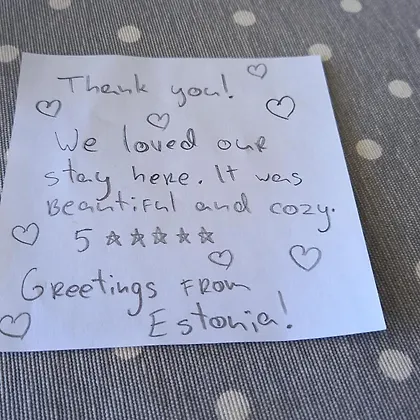 Thank you!
We loved our
stay here. It was
Beautiful and cozy.
5 ☆☆☆☆☆
Greetings from
Estonia!